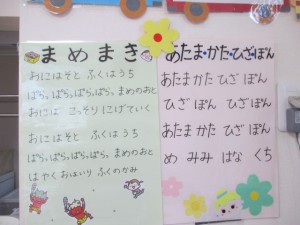 まめまき
おにはそと ふくはうち
ぱらっ ぱらっ ぱらっ ぱらっ まめのおと
おには こっそり にげていく
おにはそと ふくはうち
ぱらっ ぱらっ ぱらっ ぱらっ まめのおと
はやく おはいり ふくのかみ
あたま・かた・ひざ・ぽん
あたま かた ひざ ぽん
ひざ ぽん ひざ ぽん
あたま かた ひざ ぽん
め みみ はな くち